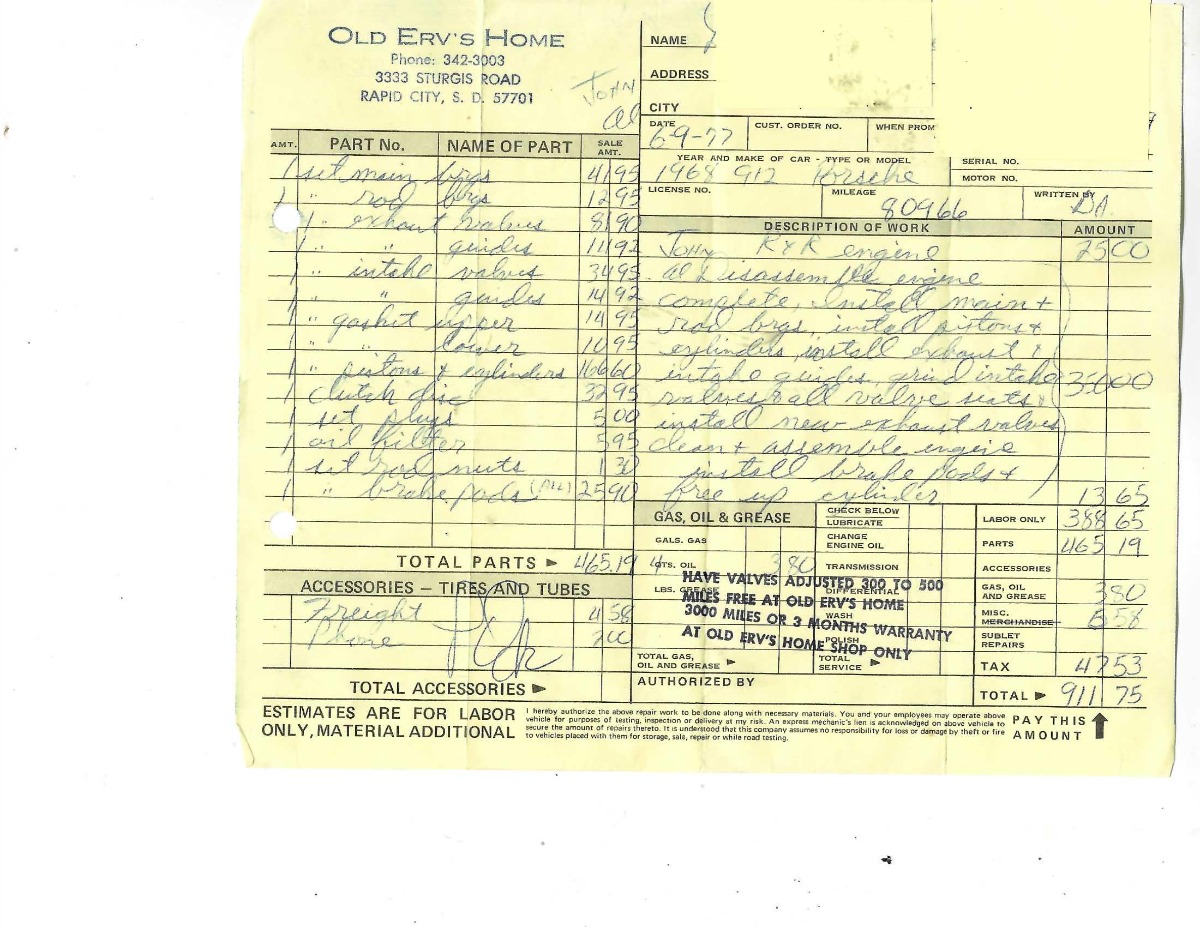 OLD ERV'S HOME
Phone: 342-3003
3333 STURGIS ROAD
RAPID CITY, S. D. 57701
JOHN
al
NAME
ADDRESS
CITY
DATE 6-9-77 CUST. ORDER NO. WHEN PROM
YEAR AND MAKE OF CAR - TYPE OR MODEL SERIAL NO.
1968 912 Porsche MOTOR NO.
LICENSE NO. MILEAGE 80966 WRITTEN BY DA
AMT. PART No. NAME OF PART SALE AMT.
1 set main brgs 41 95
1 " rod brgs 12 95
1 " exhaust valves 81 90
1 " " guides 14 92
1 " intake valves 34 95
1 " " guides 14 92
1 " gasket upper 14 95
1 " " lower 10 95
1 " pistons & cylinders 166 60
1 clutch disc 32 95
1 set plugs 5 00
1 oil filter 5 95
1 set rod nuts 1 30
1 " brake pads 25 90
TOTAL PARTS 465.19
ACCESSORIES — TIRES AND TUBES
Freight 4 58
Phone 2 00
TOTAL ACCESSORIES
DESCRIPTION OF WORK AMOUNT
John R & R engine 25 00
al Disassemble engine
complete, Install main +
rod brgs, install pistons +
cylinders, install exhaust +
intake guides, grind intake 350 00
valves & all valve seats,
install new exhaust valves
clean + assemble engine
install brake pads +
free up cylinder 13 65
GAS, OIL & GREASE CHECK BELOW
LUBRICATE
GALS. GAS CHANGE ENGINE OIL
4 QTS. OIL 3 80 TRANSMISSION
LBS. GREASE DIFFERENTIAL
WASH
POLISH
HAVE VALVES ADJUSTED 300 TO 500
MILES FREE AT OLD ERV'S HOME
3000 MILES OR 3 MONTHS WARRANTY
AT OLD ERV'S HOME SHOP ONLY
TOTAL GAS, OIL AND GREASE TOTAL SERVICE
AUTHORIZED BY
LABOR ONLY 388 65
PARTS 465 19
ACCESSORIES
GAS, OIL AND GREASE 3 80
MISC. MERCHANDISE 6 58
SUBLET REPAIRS
TAX 47 53
TOTAL 911 75
ESTIMATES ARE FOR LABOR
ONLY, MATERIAL ADDITIONAL
I hereby authorize the above repair work to be done along with necessary materials. You and your employees may operate above
vehicle for purposes of testing, inspection or delivery at my risk. An express mechanic's lien is acknowledged on above vehicle to
secure the amount of repairs thereto. It is understood that this company assumes no responsibility for loss or damage by theft or fire
to vehicles placed with them for storage, sale, repair or while road testing.
PAY THIS
AMOUNT